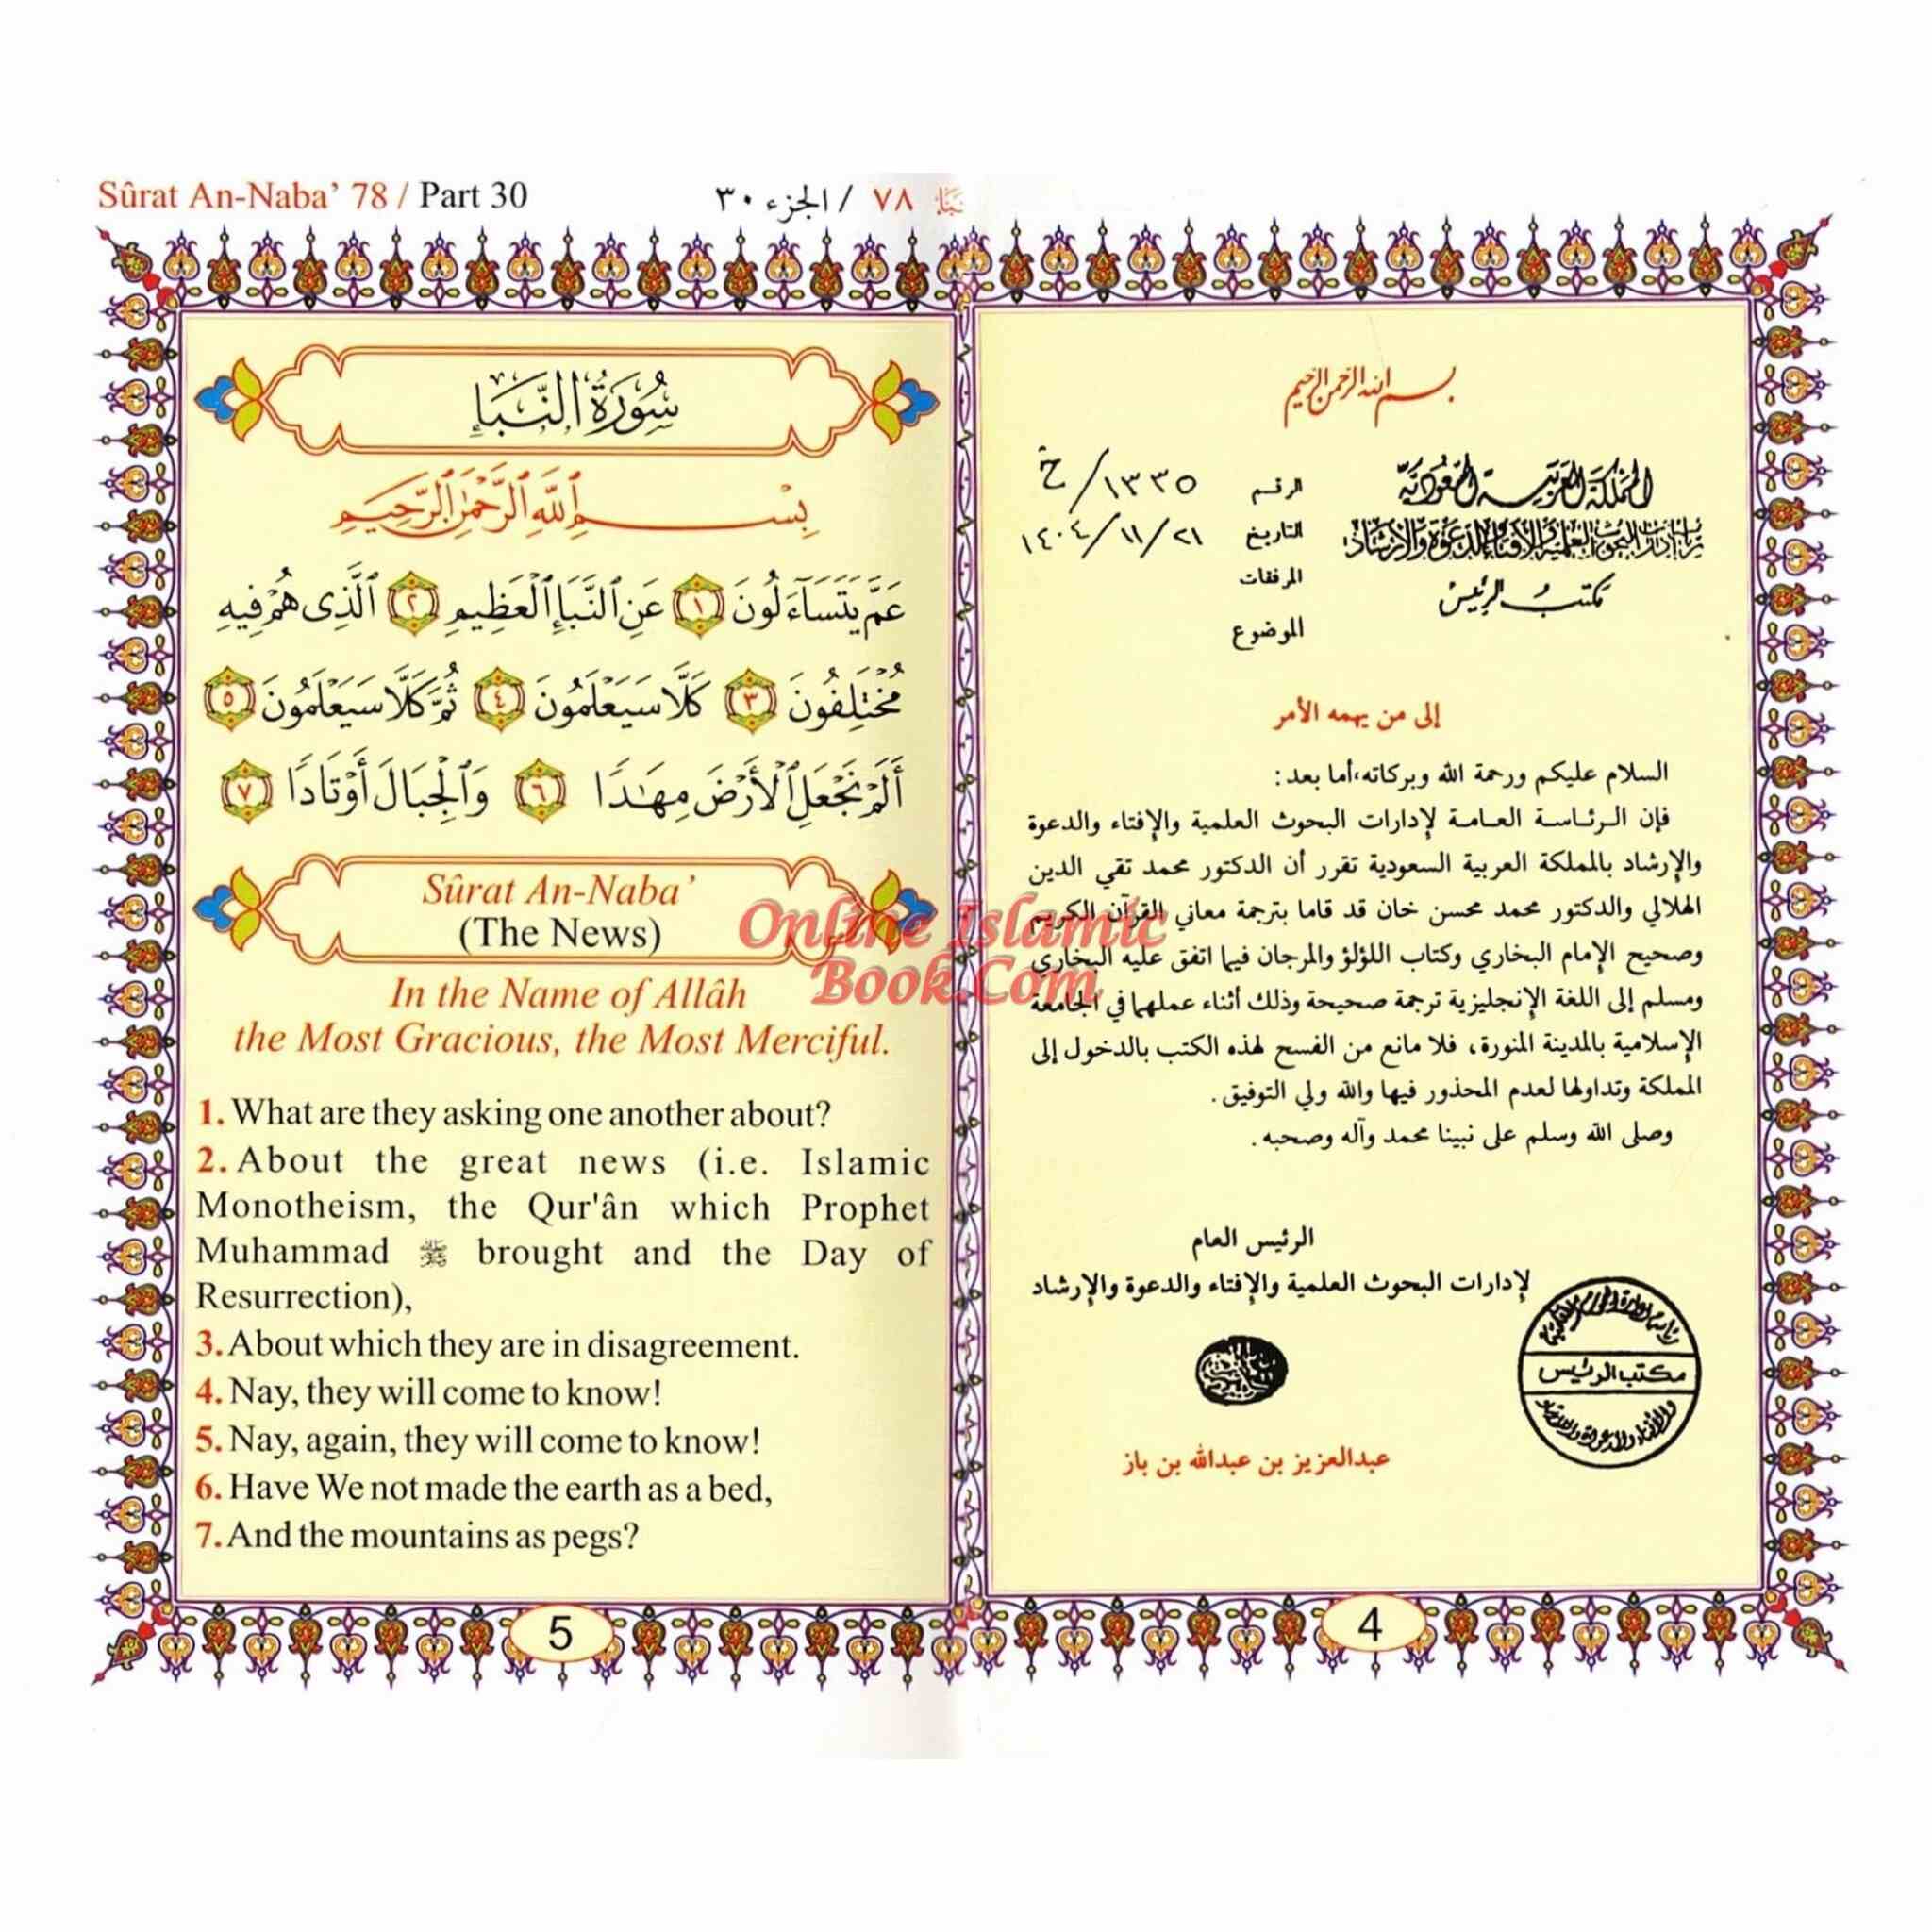 Sûrat An-Naba’ 78 / Part 30
٧٨ / الجزء ٣٠
سُورَةُ النَّبَإِ
بِسْمِ ٱللَّهِ ٱلرَّحْمَٰنِ ٱلرَّحِيمِ
عَمَّ يَتَسَآءَلُونَ ١ عَنِ ٱلنَّبَإِ ٱلْعَظِيمِ ٢ ٱلَّذِى هُمْ فِيهِ
مُخْتَلِفُونَ ٣ كَلَّا سَيَعْلَمُونَ ٤ ثُمَّ كَلَّا سَيَعْلَمُونَ ٥
أَلَمْ نَجْعَلِ ٱلْأَرْضَ مِهَٰدًا ٦ وَٱلْجِبَالَ أَوْتَادًا ٧
Sûrat An-Naba’
(The News)
In the Name of Allâh
the Most Gracious, the Most Merciful.
1. What are they asking one another about?
2. About the great news (i.e. Islamic
Monotheism, the Qur'ân which Prophet
Muhammad ﷺ brought and the Day of
Resurrection),
3. About which they are in disagreement.
4. Nay, they will come to know!
5. Nay, again, they will come to know!
6. Have We not made the earth as a bed,
7. And the mountains as pegs?
5
بسم الله الرحمن الرحيم
المملكة العربية السعودية
إدارات البحوث العلمية والإفتاء والدعوة والإرشاد
مكتب الرئيس
الرقم ١٣٣٥/خ
التاريخ ١٤٠٤/١١/٢١
المرفقات
الموضوع
إلى من يهمه الأمر
السلام عليكم ورحمة الله وبركاته، أما بعد:
فإن الرئاسة العامة لإدارات البحوث العلمية والإفتاء والدعوة
والإرشاد بالمملكة العربية السعودية تقرر أن الدكتور محمد تقي الدين
الهلالي والدكتور محمد محسن خان قد قاما بترجمة معاني القرآن الكريم
وصحيح الإمام البخاري وكتاب اللؤلؤ والمرجان فيما اتفق عليه البخاري
ومسلم إلى اللغة الإنجليزية ترجمة صحيحة وذلك أثناء عملهما في الجامعة
الإسلامية بالمدينة المنورة، فلا مانع من الفسح لهذه الكتب بالدخول إلى
المملكة وتداولها لعدم المحذور فيها والله ولي التوفيق.
وصلى الله وسلم على نبينا محمد وآله وصحبه.
الرئيس العام
لإدارات البحوث العلمية والإفتاء والدعوة والإرشاد
مكتب الرئيس
عبدالعزيز بن عبدالله بن باز
4
Online Islamic
Book.Com